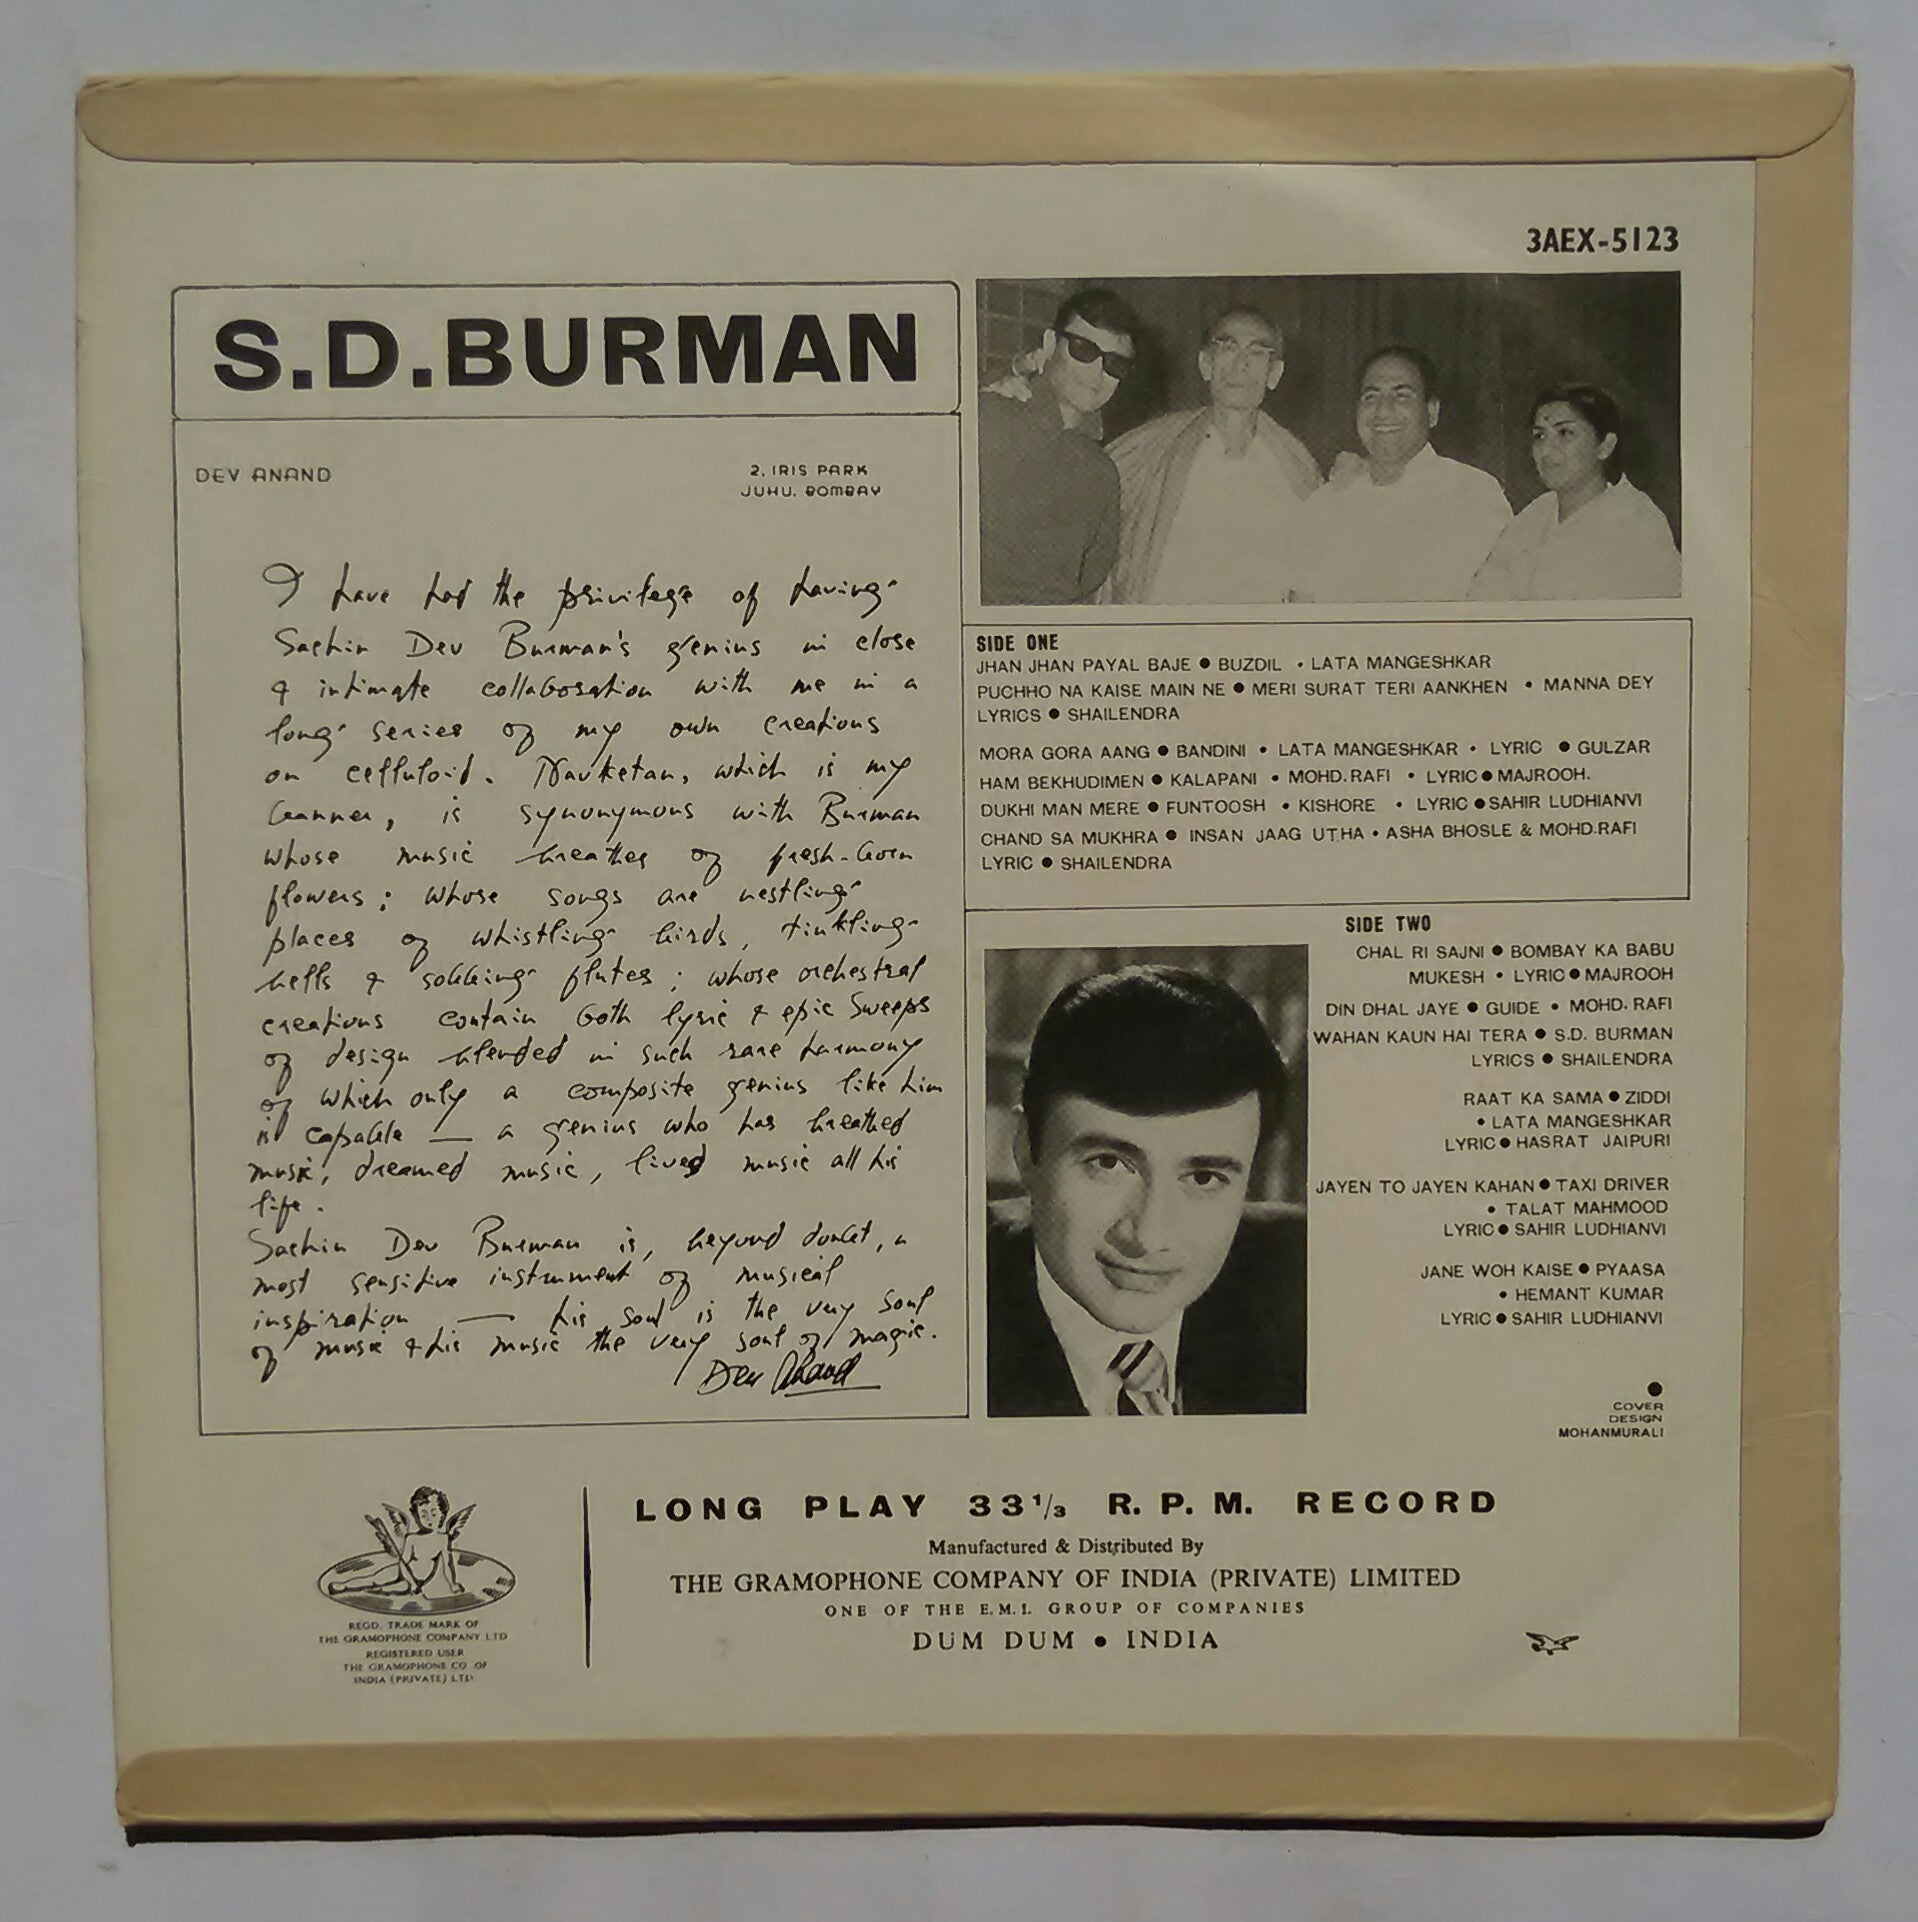 3AEX-5123
S.D.BURMAN
DEV ANAND
2, IRIS PARK
JUHU, BOMBAY
I have had the privilege of having
Sachin Dev Burman's genius in close
& intimate collaboration with me in a
long series of my own creations
on celluloid. Navketan, which is my
banner, is synonymous with Burman
whose music breathes of fresh-born
flowers; whose songs are nestling
places of whistling birds, tinkling
bells & sobbing flutes; whose orchestral
creations contain both lyric & epic sweeps
of design blended in such rare harmony
of which only a composite genius like him
is capable — a genius who has breathed
music, dreamed music, lived music all his
life.
Sachin Dev Burman is, beyond doubt, a
most sensitive instrument of musical
inspiration — his soul is the very soul
of music & his music the very soul of magic.
Dev Anand
SIDE ONE
JHAN JHAN PAYAL BAJE ● BUZDIL • LATA MANGESHKAR
PUCHHO NA KAISE MAIN NE ● MERI SURAT TERI AANKHEN • MANNA DEY
LYRICS ● SHAILENDRA
MORA GORA AANG ● BANDINI • LATA MANGESHKAR • LYRIC ● GULZAR
HAM BEKHUDIMEN ● KALAPANI • MOHD. RAFI • LYRIC ● MAJROOH.
DUKHI MAN MERE ● FUNTOOSH • KISHORE • LYRIC ● SAHIR LUDHIANVI
CHAND SA MUKHRA ● INSAN JAAG UTHA • ASHA BHOSLE & MOHD.RAFI
LYRIC ● SHAILENDRA
SIDE TWO
CHAL RI SAJNI ● BOMBAY KA BABU
MUKESH • LYRIC ● MAJROOH
DIN DHAL JAYE ● GUIDE • MOHD. RAFI
WAHAN KAUN HAI TERA ● S.D. BURMAN
LYRICS ● SHAILENDRA
RAAT KA SAMA ● ZIDDI
• LATA MANGESHKAR
LYRIC ● HASRAT JAIPURI
JAYEN TO JAYEN KAHAN ● TAXI DRIVER
• TALAT MAHMOOD
LYRIC ● SAHIR LUDHIANVI
JANE WOH KAISE ● PYAASA
• HEMANT KUMAR
LYRIC ● SAHIR LUDHIANVI
●
COVER
DESIGN
MOHANMURALI
REGD. TRADE MARK OF
THE GRAMOPHONE COMPANY LTD
REGISTERED USER
THE GRAMOPHONE CO OF
INDIA (PRIVATE) LTD
LONG PLAY 33 1/3 R. P. M. RECORD
Manufactured & Distributed By
THE GRAMOPHONE COMPANY OF INDIA (PRIVATE) LIMITED
ONE OF THE E.M.I. GROUP OF COMPANIES
DUM DUM ● INDIA